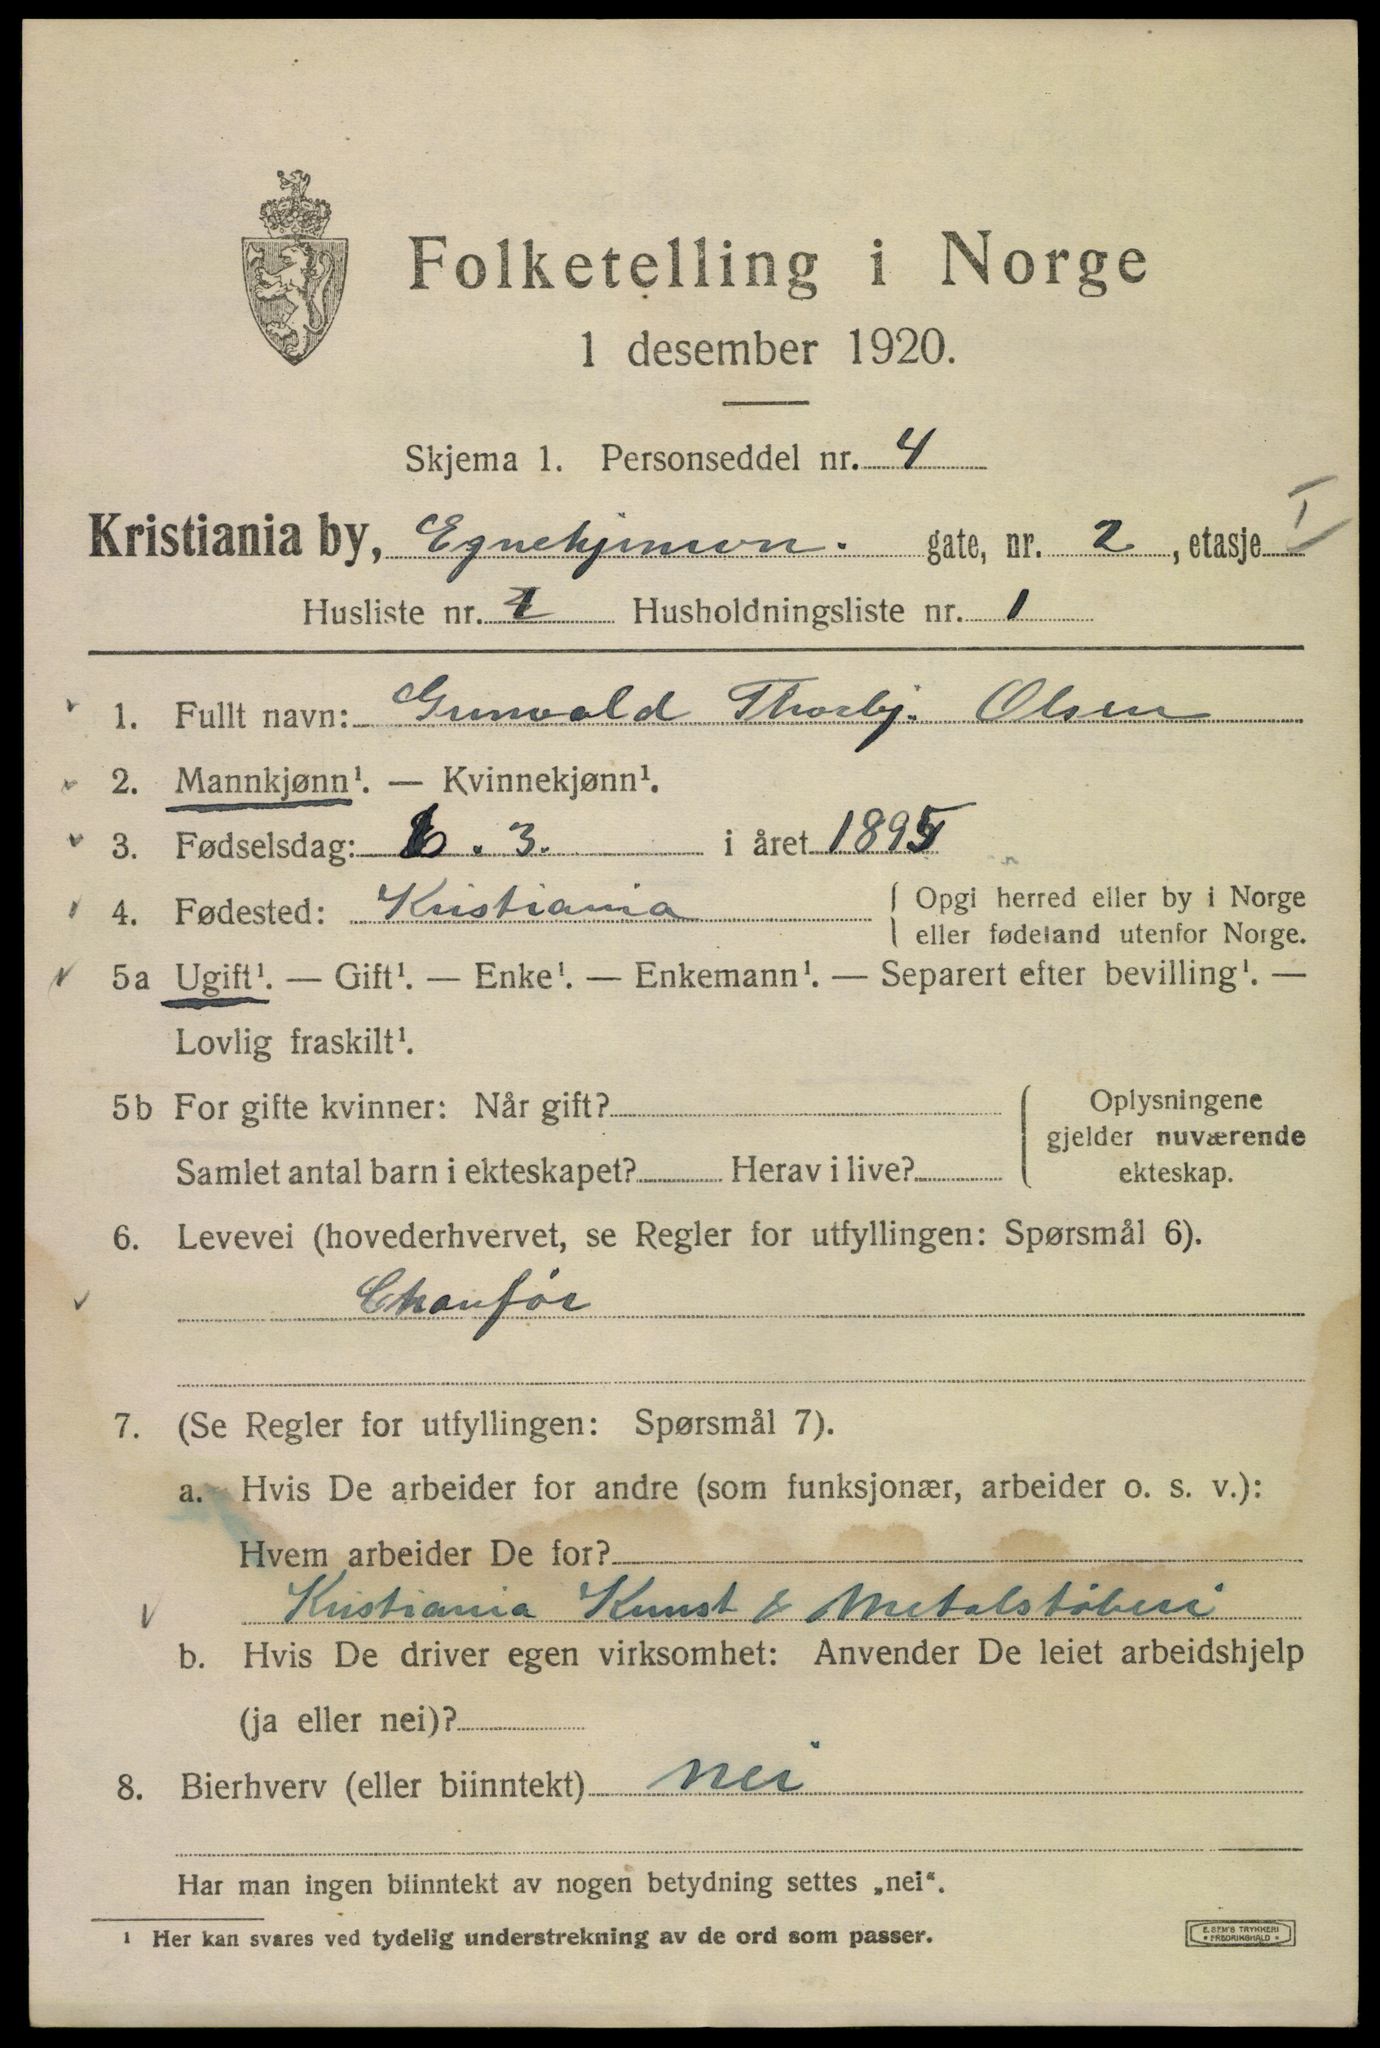 Folketelling i Norge
1 desember 1920.
Skjema 1. Personseddel nr. 4
Kristiania by, Egnehjemvn. gate, nr. 2, etasje I
Husliste nr. Husholdningsliste nr. 1
1. Fullt navn: Gunvald Thorbj. Olsen
2. Mannkjønn¹. — Kvinnekjønn¹.
3. Fødselsdag: 6. 3. i året 1895
4. Fødested: Kristiania { Opgi herred eller by i Norge
eller fødeland utenfor Norge.
5a Ugift¹. — Gift¹. — Enke¹. — Enkemann¹. — Separert efter bevilling¹. —
Lovlig fraskilt¹.
5b For gifte kvinner: Når gift?
Samlet antal barn i ekteskapet? Herav i live?
Oplysningene
gjelder nuværende
ekteskap.
6. Levevei (hovederhvervet, se Regler for utfyllingen: Spørsmål 6).
Chauför
7. (Se Regler for utfyllingen: Spørsmål 7).
a. Hvis De arbeider for andre (som funksjonær, arbeider o. s. v.):
Hvem arbeider De for?
Kristiania Kunst & Metalstöberi
b. Hvis De driver egen virksomhet: Anvender De leiet arbeidshjelp
(ja eller nei)?
8. Bierhverv (eller biinntekt) nei
Har man ingen biinntekt av nogen betydning settes „nei“.
¹ Her kan svares ved tydelig understrekning av de ord som passer.
E. SEM'S TRYKKERI
* FREDRIKSHALD *